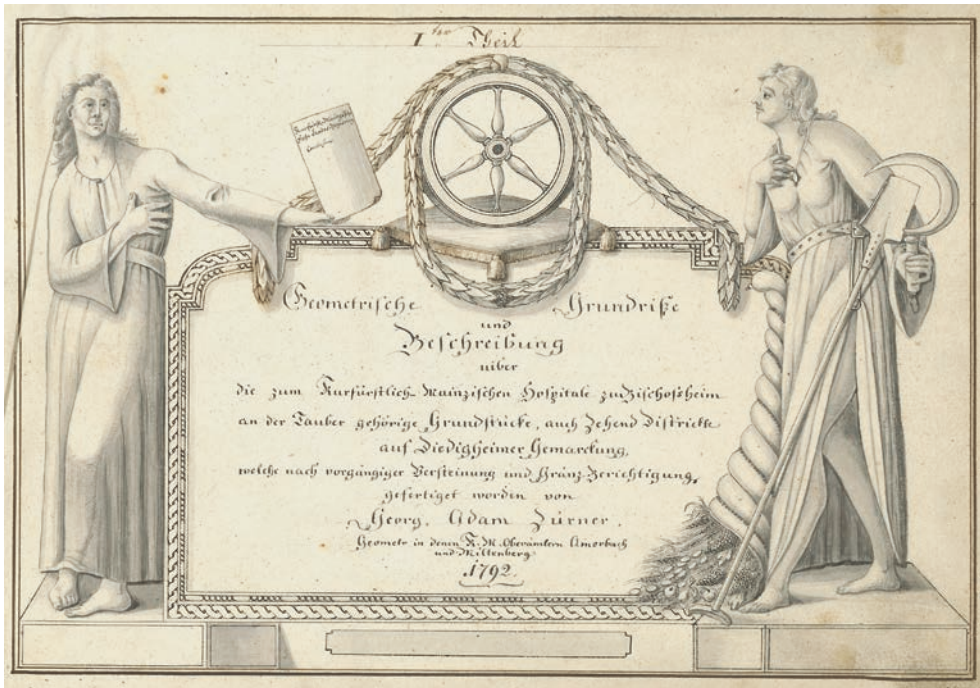 I.ter Theil
Geometrische Grundriße
und
Beschreibung
uiber
die zum Kurfürstlich-Mainzischen Hospitale zu Bischofsheim
an der Tauber gehörige Grundstücke, auch Zehend Districkte
auf Diedigheimer Gemarckung,
welche nach vorgängiger Versteinung und Gränz-Berichtigung,
gefertiget worden von
Georg. Adam Zürner.
Geometr in denen K. M. Oberämtern Amorbach
und Miltenberg
1792.